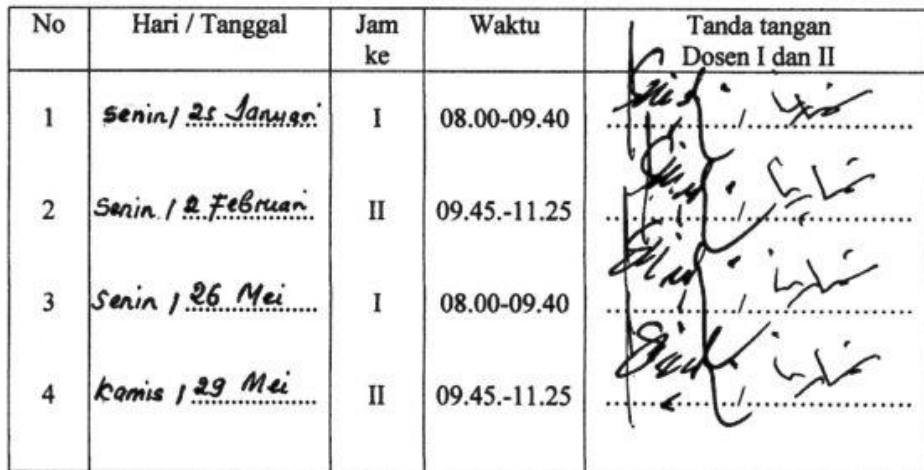 No Hari / Tanggal Jam ke Waktu Tanda tangan Dosen I dan II
1 Senin / 25 Januari I 08.00-09.40
2 Senin / 2 Februari II 09.45.-11.25
3 Senin / 26 Mei I 08.00-09.40
4 Kamis / 29 Mei II 09.45.-11.25